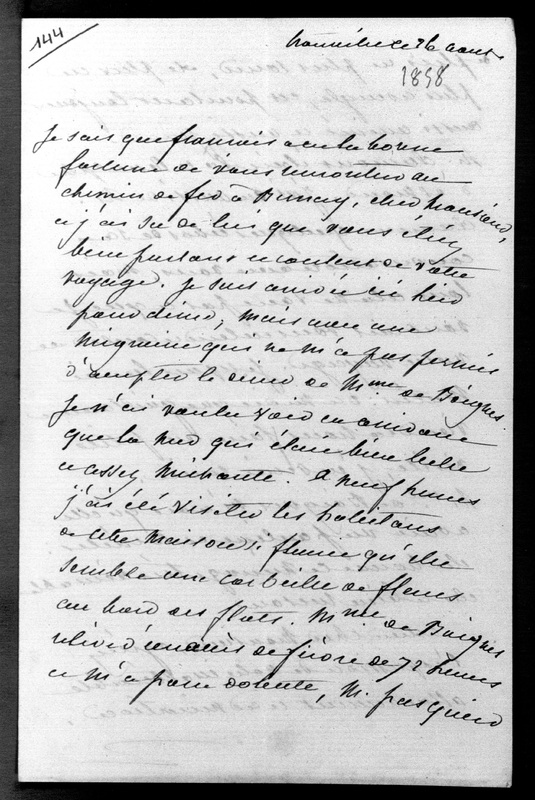 144
Trouville ce 26 aout
1858
Je sais que francois a eu la bonne
fortune de vous rencontrer au
chemin de fer à , cher Monsieur,
et j'ai su de lui que vous étiez
bien portant et content de votre
voyage. Je suis arrivé ici hier
pour diner, mais avec une
migraine qui ne m'a pas permis
d'accepter le diner de Mme de Boignes.
Je n'ai voulu voir en arrivant
que la mer qui était bien belle
et assez méchante. A neuf heures
j'ai été visiter les habitans
de cette maison si fleurie qu'elle
semble une corbeille de fleurs
au bord des flots. Mme de Boignes
relève d'un accès de fièvre de 72 heures
et m'a paru dolente, M. pasquier